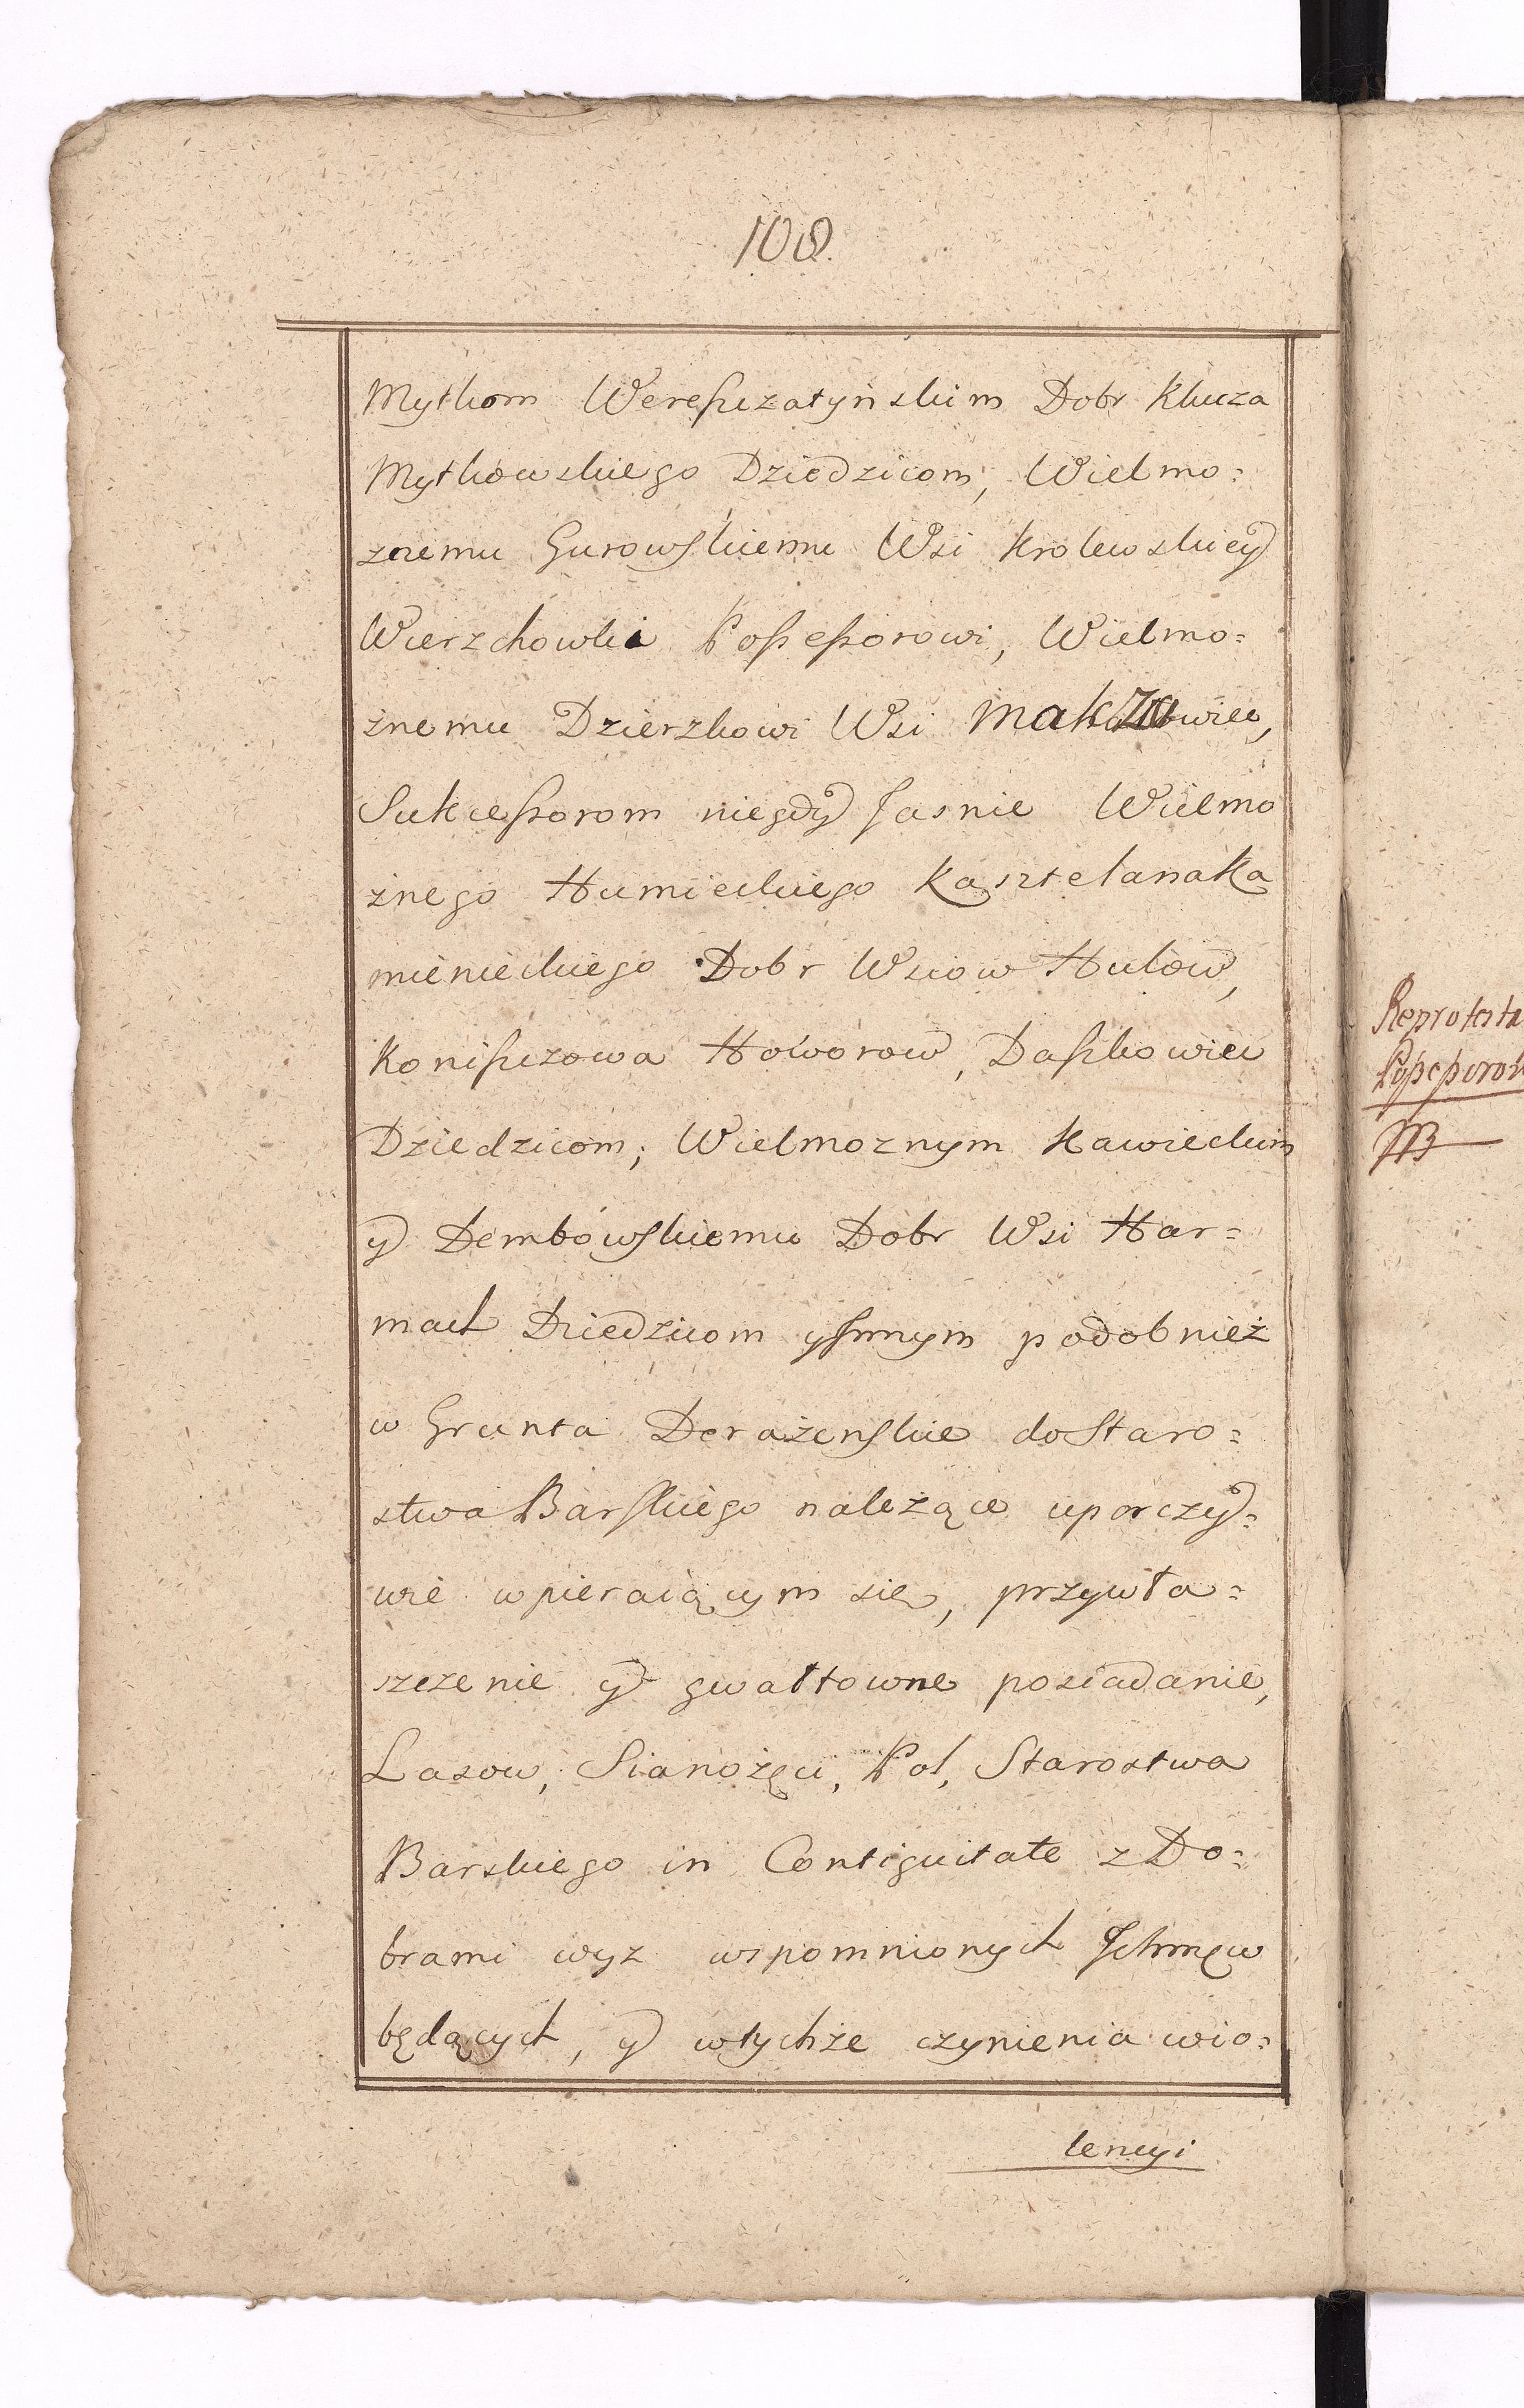 108.
Mytkom Wereszczatyńskim Dobr Klucza
Mytkowskiego Dziedzicom, Wielmo=
znemu Gurowskiemu Wsi Krolewskiey
Wierzchowki Possessorowi, Wielmo=
żnemu Dzierzkowi Wsi wiec,
Sukcessorom niegdy Jasnie Wielmo
żnego Humieckiego Kasztelana Ka
mienieckiego Dobr Wsiow Hulow,
Koniszczowa Howorow, Daszkowiec
Dziedzicom; Wielmoznym Kawieckim
y Dembowskiemu Dobr Wsi Har=
mach Dziedzicom ysinnym podobnież
w Grunta Derażenskie do Staro=
stwa Barskiego należące uporczy=
wie wpieraiącym się, przywła=
szczenie y gwałtowne posiadanie,
Lasow, Sianożęci, Pol, Starostwa
Barskiego in Contiguitate z Do=
brami wyz wspomnionych Ichmęw
będących, y wtychże czynienia wio=
lencyi
Reprotesta
Possessorow